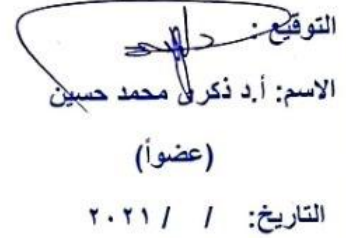 التوقيع:
الاسم: أ.د ذكرى محمد حسين
(عضواً)
التاريخ: / / ٢٠٢١